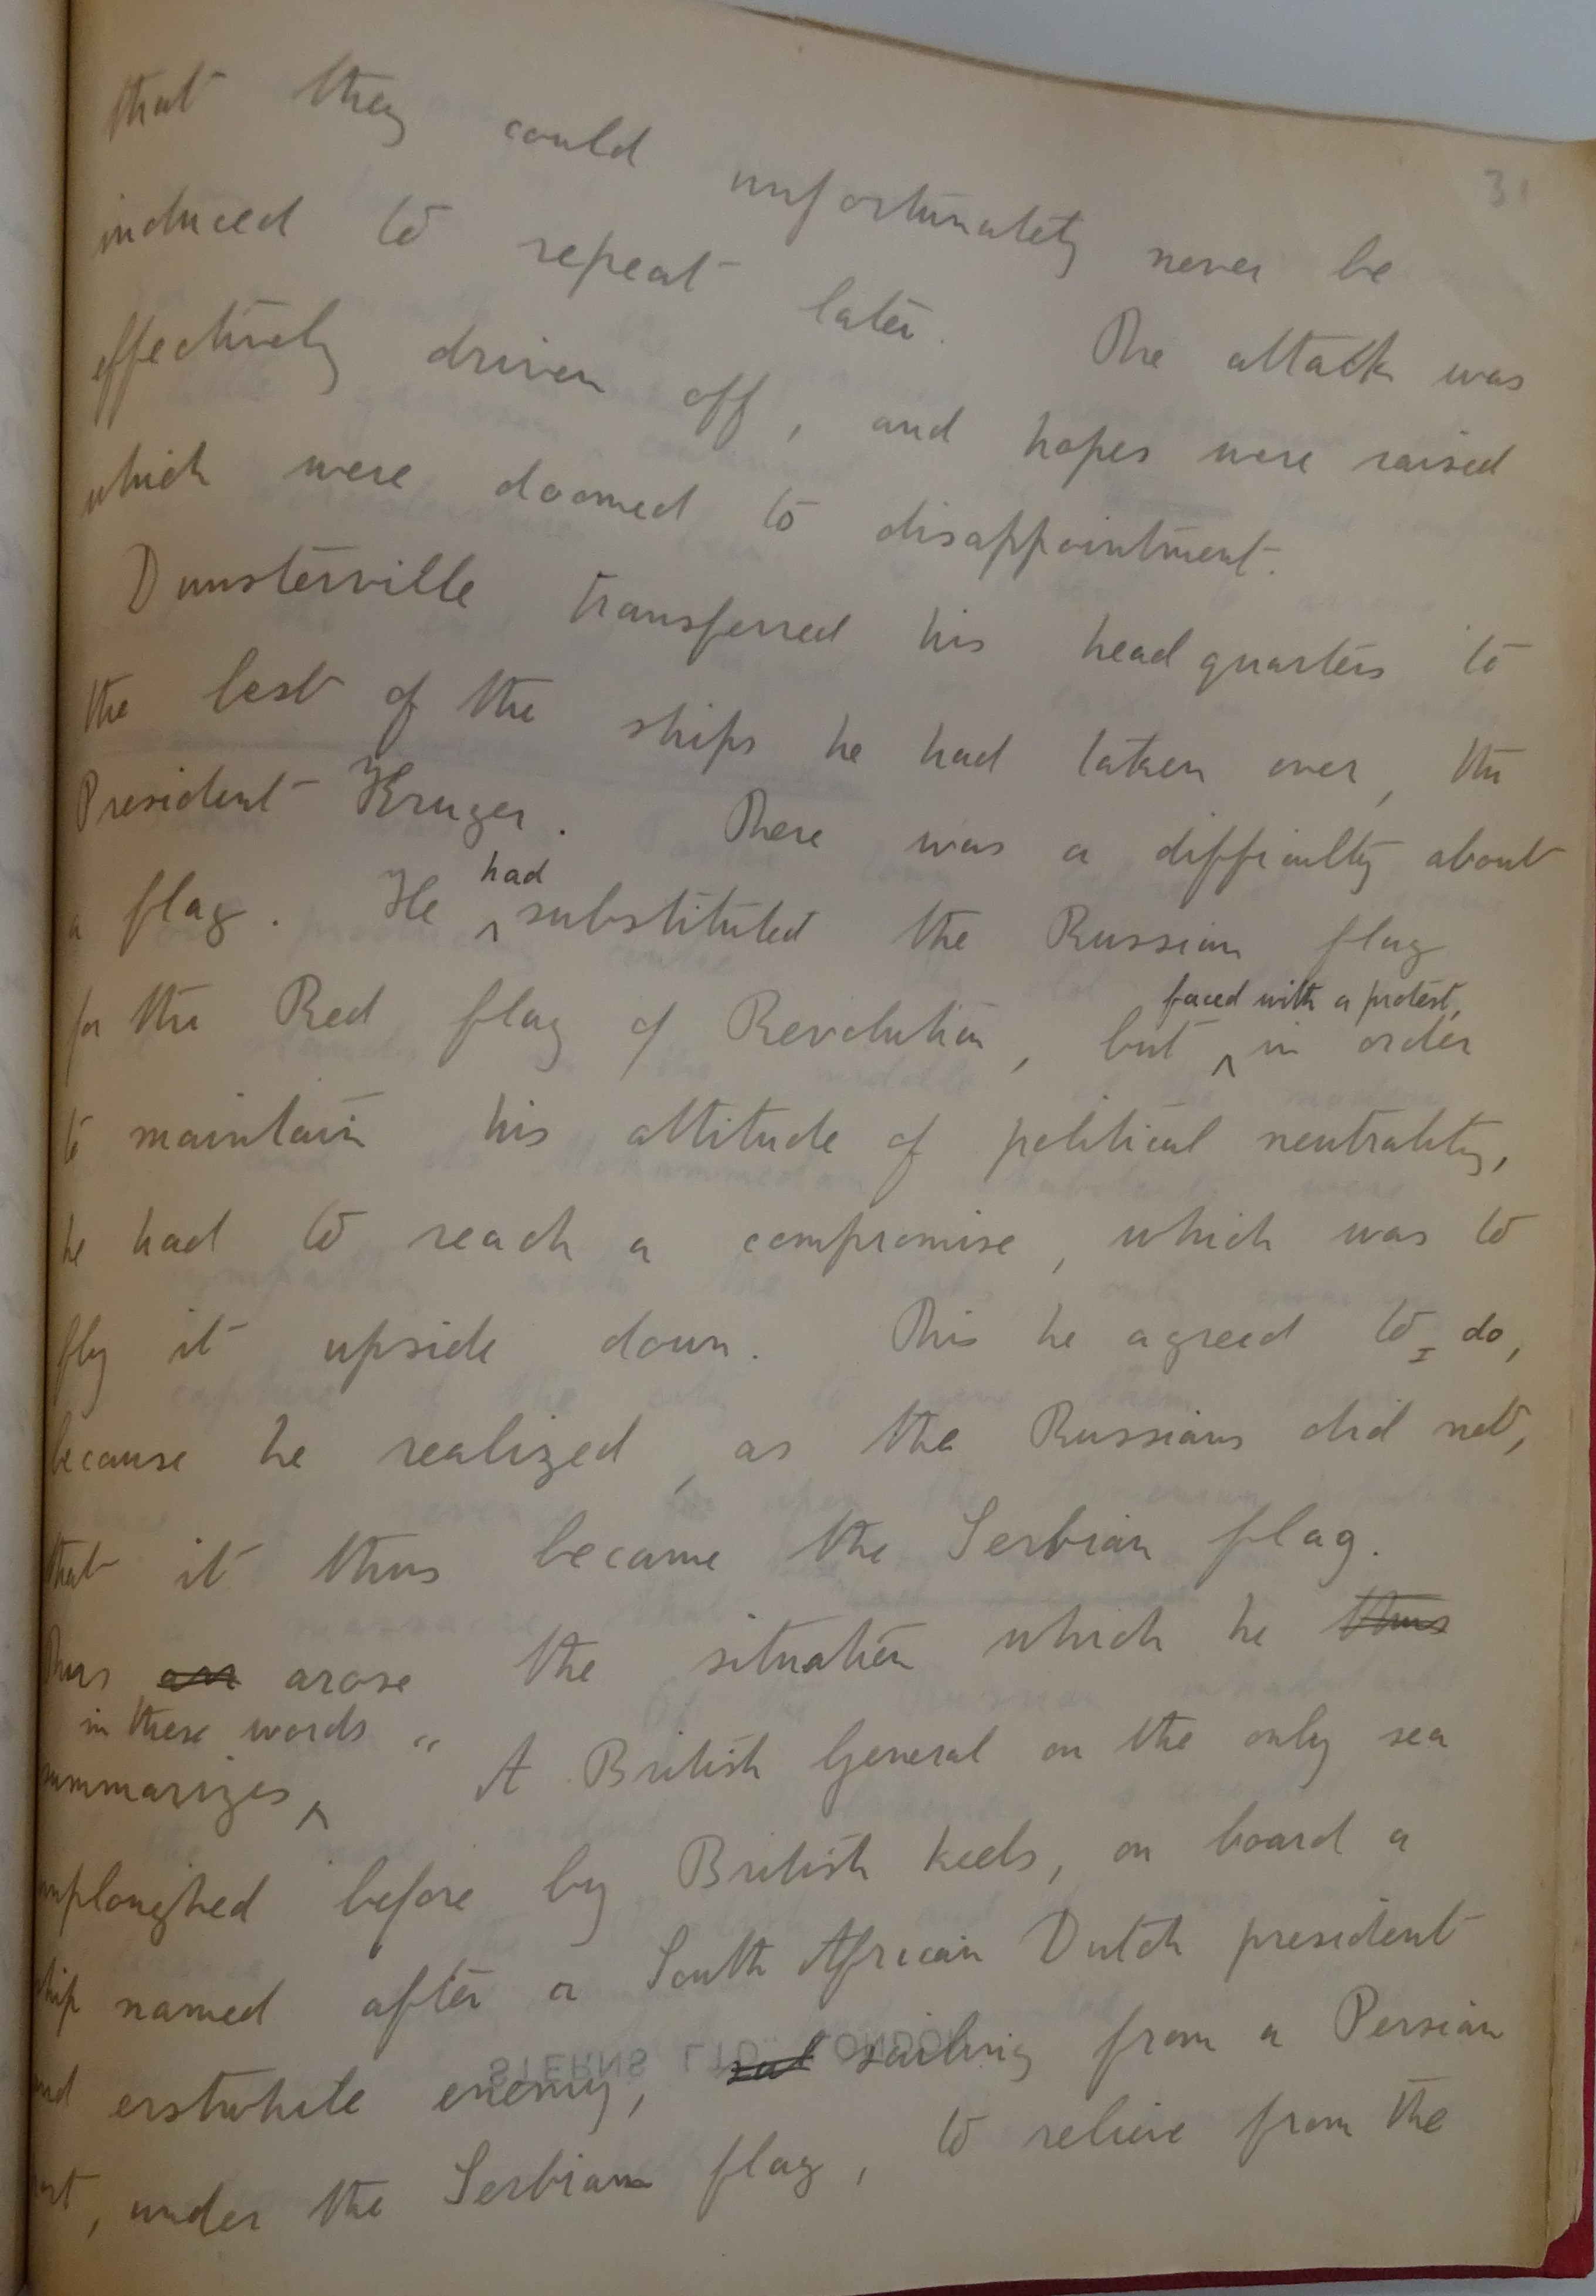 31
that they could unfortunately never be
induced to repeat later. The attack was
effectively driven off, and hopes were raised
which were doomed to disappointment.
Dunsterville transferred his headquarters to
the best of the ships he had taken over, the
President Kruger. There was a difficulty about
a flag. He had substituted the Russian flag
for the Red flag of Revolution, but faced with a protest, in order
to maintain his attitude of political neutrality,
he had to reach a compromise, which was to
fly it upside down. This he agreed to do,
because he realized, as the Russians did not,
that it thus became the Serbian flag.
Thus arose the situation which he thus
summarizes in these words " A British General on the only sea
unploughed before by British keels, on board a
ship named after a South African Dutch president
and erstwhile enemy, sailing from a Persian
port, under the Serbian flag, to relieve from the
STERNS LTD. LONDON